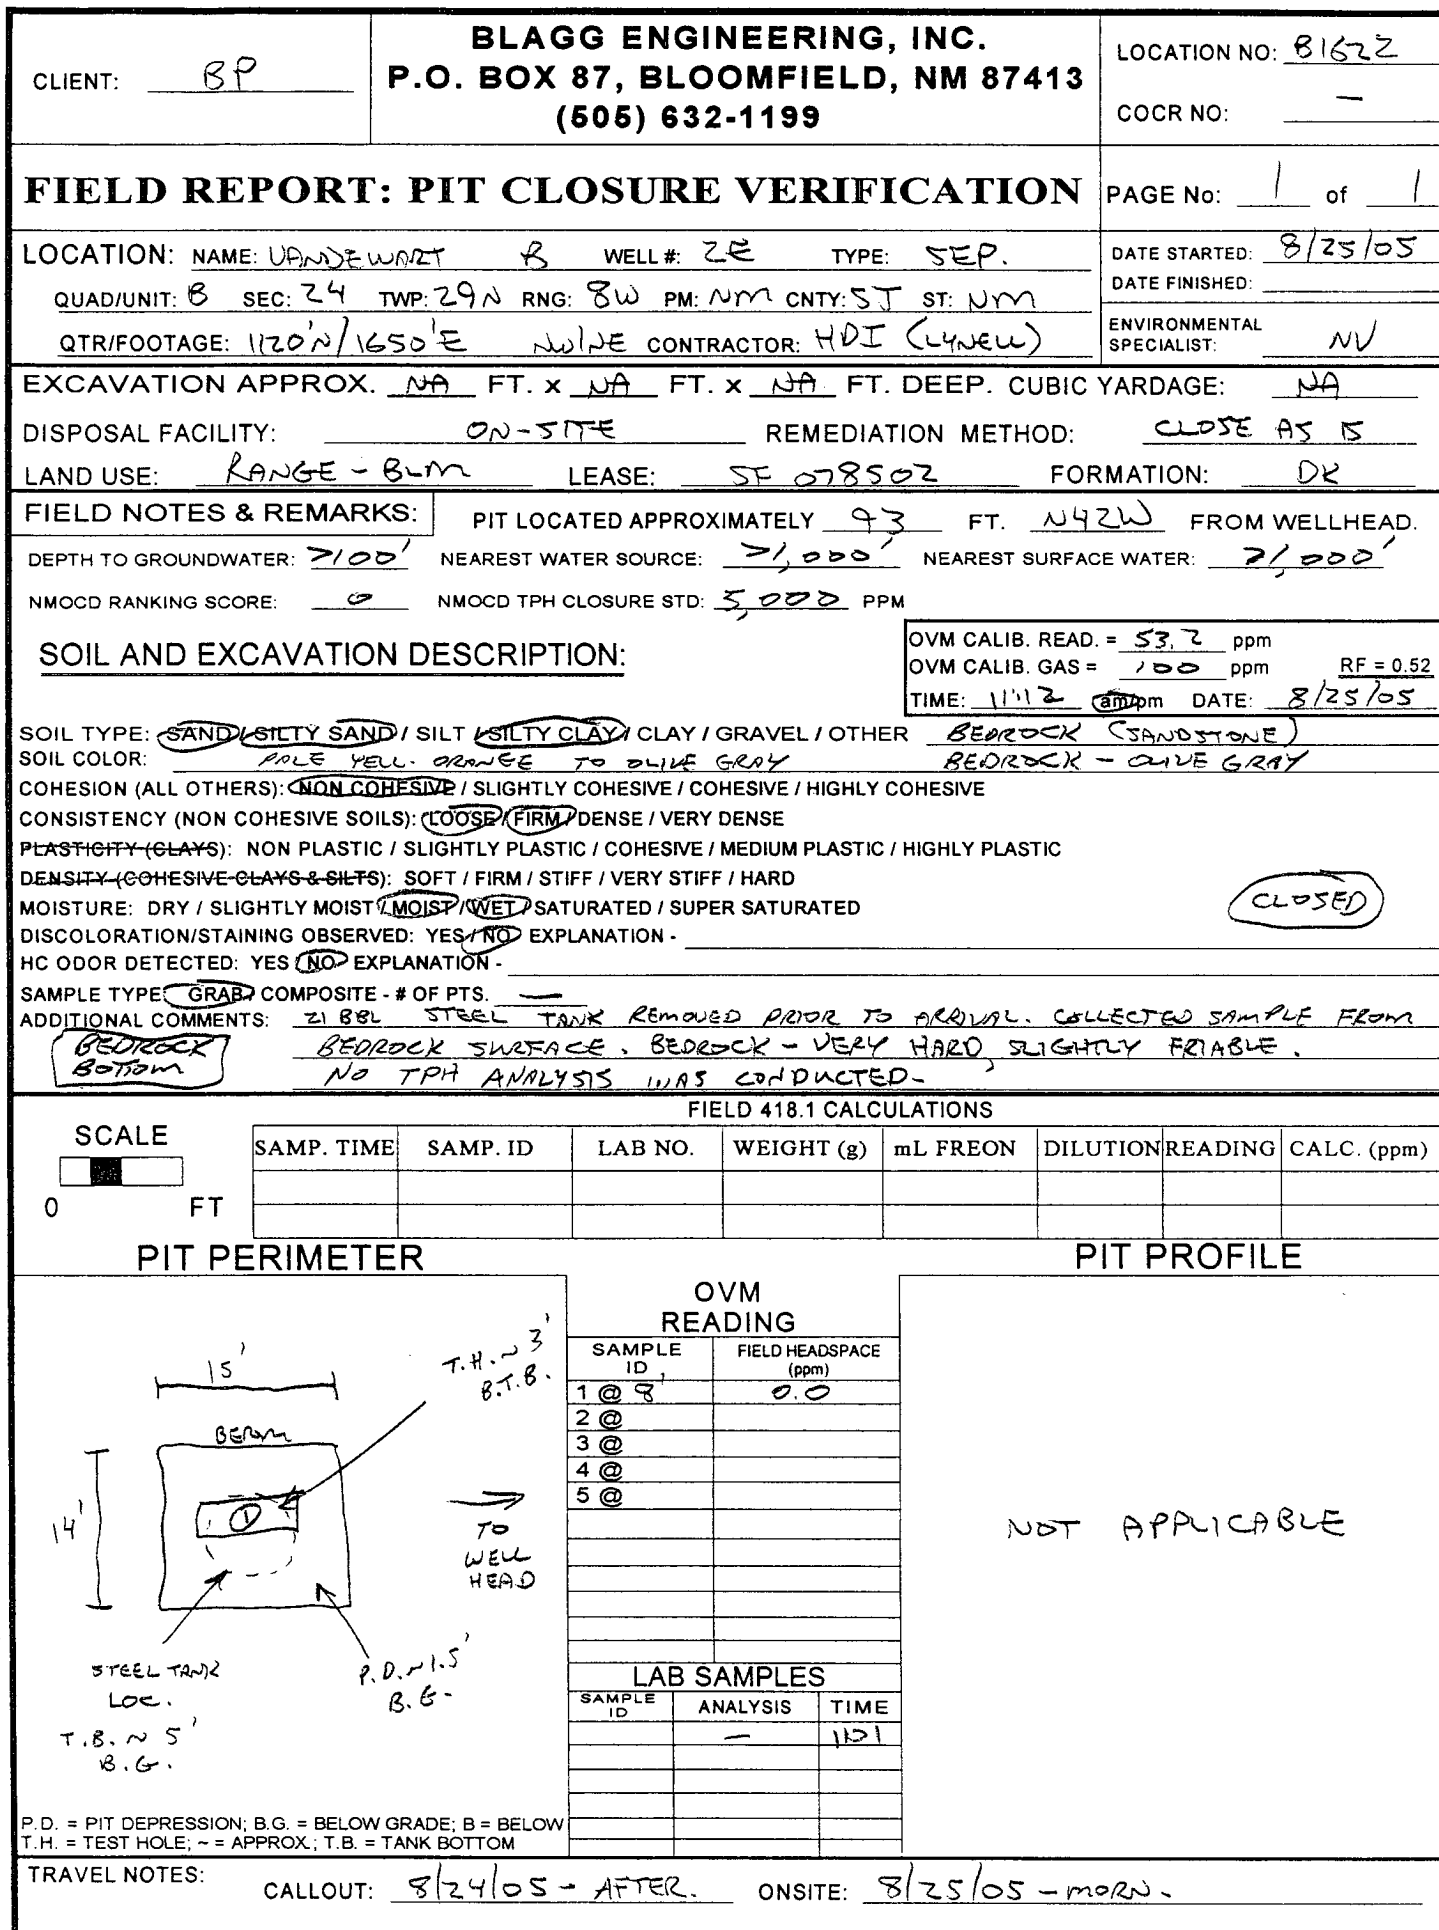 CLIENT: BP
BLAGG ENGINEERING, INC.
P.O. BOX 87, BLOOMFIELD, NM 87413
(505) 632-1199
LOCATION NO: B1622
COCR NO: —
FIELD REPORT: PIT CLOSURE VERIFICATION
PAGE No: 1 of 1
LOCATION: NAME: VANDEWART B WELL #: 2E TYPE: SEP.
QUAD/UNIT: B SEC: 24 TWP: 29N RNG: 8W PM: NM CNTY: SJ ST: NM
QTR/FOOTAGE: 1120'N/1650'E NW/NE CONTRACTOR: HDI (LYNELL)
DATE STARTED: 8/25/05
DATE FINISHED:
ENVIRONMENTAL SPECIALIST: NV
EXCAVATION APPROX. NA FT. x NA FT. x NA FT. DEEP. CUBIC YARDAGE: NA
DISPOSAL FACILITY: ON-SITE REMEDIATION METHOD: CLOSE AS IS
LAND USE: RANGE - BLM LEASE: SF 078502 FORMATION: DK
FIELD NOTES & REMARKS: PIT LOCATED APPROXIMATELY 93 FT. N42W FROM WELLHEAD.
DEPTH TO GROUNDWATER: >100' NEAREST WATER SOURCE: >1,000' NEAREST SURFACE WATER: >1,000'
NMOCD RANKING SCORE: 0 NMOCD TPH CLOSURE STD: 5,000 PPM
SOIL AND EXCAVATION DESCRIPTION:
OVM CALIB. READ. = 53.2 ppm
OVM CALIB. GAS = 100 ppm RF = 0.52
TIME: 11:12 am/pm DATE: 8/25/05
SOIL TYPE: SAND / SILTY SAND / SILT / SILTY CLAY / CLAY / GRAVEL / OTHER BEDROCK (SANDSTONE)
SOIL COLOR: PALE YELL. ORANGE TO OLIVE GRAY BEDROCK - OLIVE GRAY
COHESION (ALL OTHERS): NON COHESIVE / SLIGHTLY COHESIVE / COHESIVE / HIGHLY COHESIVE
CONSISTENCY (NON COHESIVE SOILS): LOOSE / FIRM / DENSE / VERY DENSE
PLASTICITY (CLAYS): NON PLASTIC / SLIGHTLY PLASTIC / COHESIVE / MEDIUM PLASTIC / HIGHLY PLASTIC
DENSITY (COHESIVE CLAYS & SILTS): SOFT / FIRM / STIFF / VERY STIFF / HARD
MOISTURE: DRY / SLIGHTLY MOIST / MOIST / WET / SATURATED / SUPER SATURATED
CLOSED
DISCOLORATION/STAINING OBSERVED: YES / NO EXPLANATION -
HC ODOR DETECTED: YES / NO EXPLANATION -
SAMPLE TYPE: GRAB / COMPOSITE - # OF PTS. —
ADDITIONAL COMMENTS: 21 BBL STEEL TANK REMOVED PRIOR TO ARRIVAL. COLLECTED SAMPLE FROM
BEDROCK BOTTOM
BEDROCK SURFACE. BEDROCK - VERY HARD, SLIGHTLY FRIABLE.
NO TPH ANALYSIS WAS CONDUCTED-
FIELD 418.1 CALCULATIONS
SCALE
0 FT
SAMP. TIME SAMP. ID LAB NO. WEIGHT (g) mL FREON DILUTION READING CALC. (ppm)
PIT PERIMETER
PIT PROFILE
OVM READING
SAMPLE ID FIELD HEADSPACE (ppm)
1 @ 8' 0.0
2 @
3 @
4 @
5 @
15'
T.H. ~ 3'
B.T.B.
BERM
14'
1
TO
WELL
HEAD
NOT APPLICABLE
STEEL TANK
LOC.
T.B. ~ 5'
B.G.
P.D. ~ 1.5'
B.G.
LAB SAMPLES
SAMPLE ID ANALYSIS TIME
— 1101
P.D. = PIT DEPRESSION; B.G. = BELOW GRADE; B = BELOW
T.H. = TEST HOLE; ~ = APPROX.; T.B. = TANK BOTTOM
TRAVEL NOTES: CALLOUT: 8/24/05 - AFTER. ONSITE: 8/25/05 - MORN.